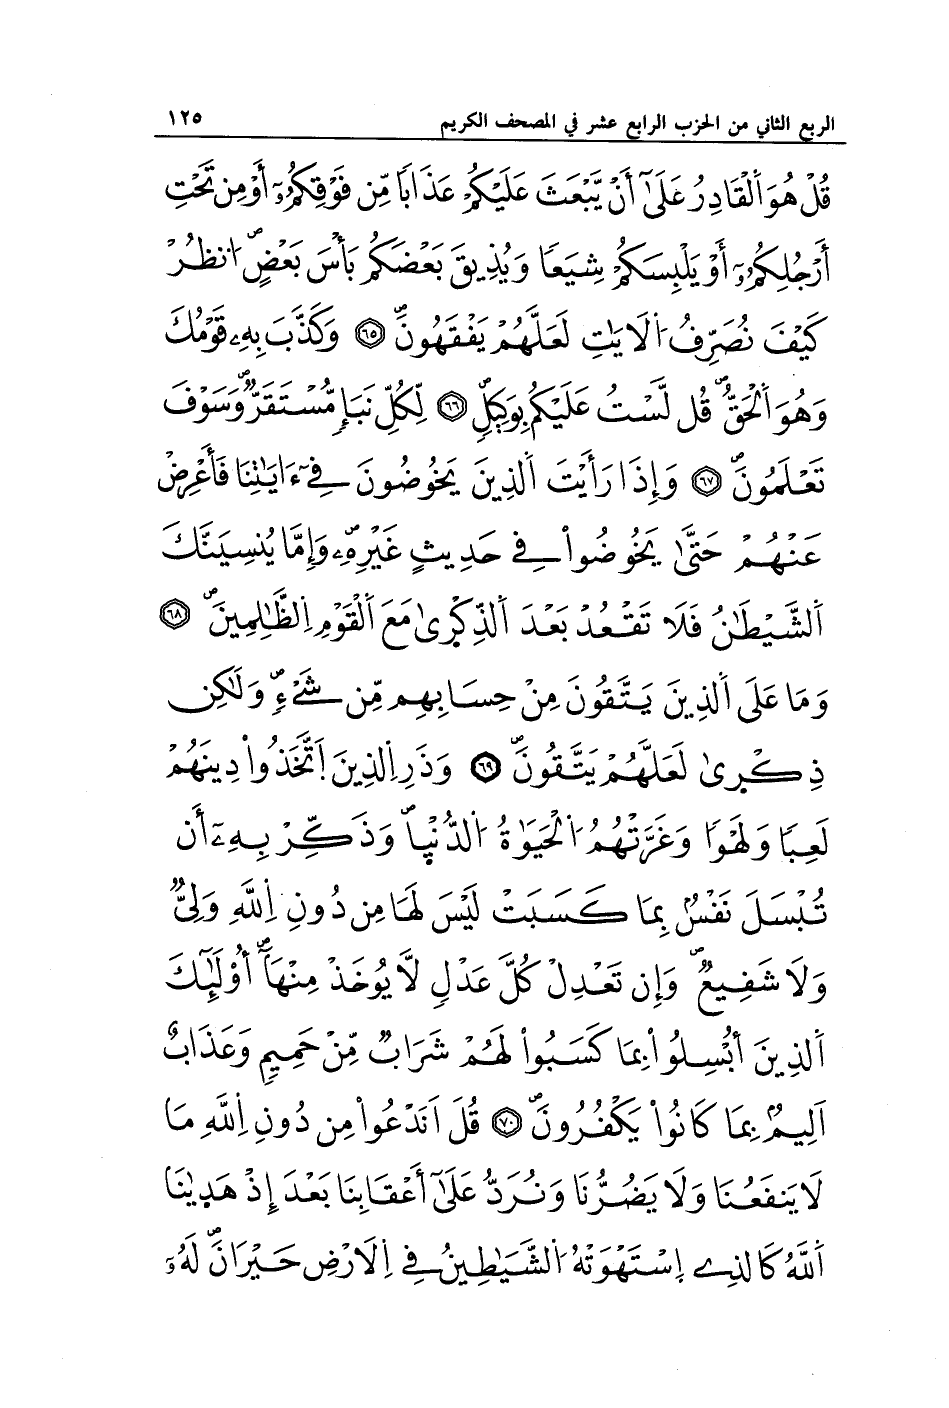 الربع الثاني من الحزب الرابع عشر في المصحف الكريم ١٢٥
قُلْ هُوَ اَ۬لْقَادِرُ عَلَيٰٓ أَنْ يَّبْعَثَ عَلَيْكُمْ عَذَاباٗ مِّن فَوْقِكُمُۥٓ أَوْ مِن تَحْتِ
أَرْجُلِكُمُۥٓ أَوْ يَلْبِسَكُمْ شِيَعاٗ وَيُذِيقَ بَعْضَكُم بَأْسَ بَعْضٍۖ اُ۟نظُرْ
كَيْفَ نُصَرِّفُ اُ۬لَايَٰتِ لَعَلَّهُمْ يَفْقَهُونَۖ ٦٥ وَكَذَّبَ بِهِۦ قَوْمُكَ
وَهُوَ اَ۬لْحَقُّۖ قُل لَّسْتُ عَلَيْكُم بِوَكِيلٖۖ ٦٦ لِّكُلِّ نَبَإٖ مُّسْتَقَرّٞۖ وَسَوْفَ
تَعْلَمُونَۖ ٦٧ وَإِذَا رَأَيْتَ اَ۬لذِينَ يَخُوضُونَ فِےٓ ءَايَٰتِنَا فَأَعْرِضْ
عَنْهُمْ حَتَّىٰ يَخُوضُواْ فِے حَدِيثٍ غَيْرِهِۦۖ وَإِمَّا يُنسِيَنَّكَ
اَ۬لشَّيْطَٰنُ فَلَا تَقْعُدْ بَعْدَ اَ۬لذِّكْر۪ىٰ مَعَ اَ۬لْقَوْمِ اِ۬لظَّٰلِمِينَۖ ٦٨
وَمَا عَلَى اَ۬لذِينَ يَتَّقُونَ مِنْ حِسَابِهِم مِّن شَےْءٖۖ وَلَٰكِن
ذِكْر۪ىٰ لَعَلَّهُمْ يَتَّقُونَۖ ٦٩ وَذَرِ اِ۬لذِينَ اَ۪تَّخَذُواْ دِينَهُمْ
لَعِباٗ وَلَهْواٗ وَغَرَّتْهُمُ اُ۬لْحَيَوٰةُ اُ۬لدُّنْي۪اۖ وَذَكِّرْ بِهِۦٓ أَن
تُبْسَلَ نَفْسُۢ بِمَا كَسَبَتْ لَيْسَ لَهَا مِن دُونِ اِ۬للَّهِ وَلِيّٞ
وَلَا شَفِيعٞۖ وَإِن تَعْدِلْ كُلَّ عَدْلٖ لَّا يُوخَذْ مِنْهَآۖ أُوْلَٰٓئِكَ
اَ۬لذِينَ أُبْسِلُواْ بِمَا كَسَبُواْ لَهُمْ شَرَابٞ مِّنْ حَمِيمٖ وَعَذَابٌ
اَلِيمُۢ بِمَا كَانُواْ يَكْفُرُونَۖ ٧٠ قُلَ اَنَدْعُواْ مِن دُونِ اِ۬للَّهِ مَا
لَا يَنفَعُنَا وَلَا يَضُرُّنَا وَنُرَدُّ عَلَيٰٓ أَعْقَابِنَا بَعْدَ إِذْ هَد۪يٰنَا
اَ۬للَّهُ كَالذِے اِ۪سْتَهْوَتْهُ اُ۬لشَّيَٰطِينُ فِے اِ۬لَارْضِ حَيْرَانَۖ لَهُۥٓ